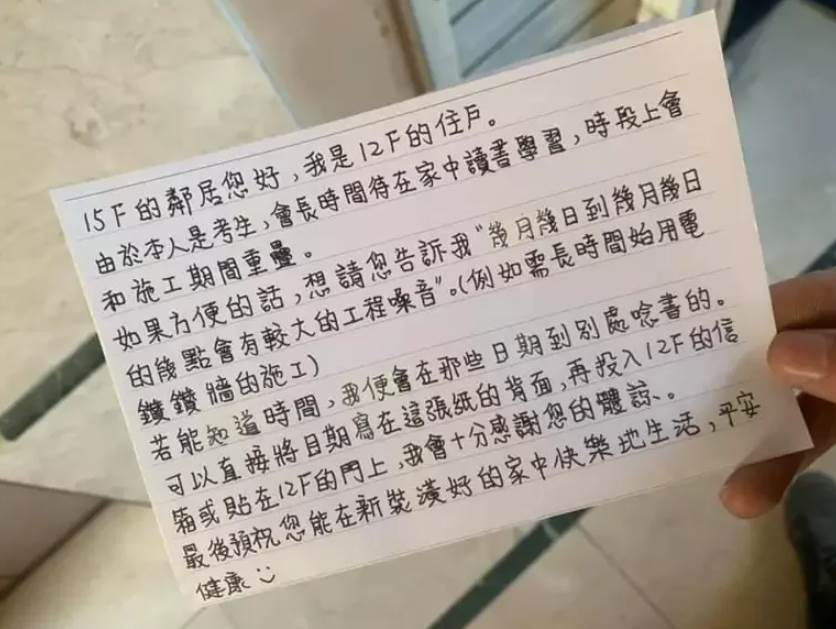 15F的鄰居您好，我是12F的住戶。
由於本人是考生，會長時間待在家中讀書學習，時段上會
和施工期間重疊。
如果方便的話，想請您告訴我"幾月幾日到幾月幾日
的幾點會有較大的工程噪音"。(例如需長時間始用電
鑽鑽牆的施工)
若能知道時間，我便會在那些日期到別處唸書的。
可以直接將日期寫在這張紙的背面，再投入12F的信
箱或貼在12F的門上，我會十分感謝您的體諒、。
最後預祝您能在新裝潢好的家中快樂地生活，平安
健康:)